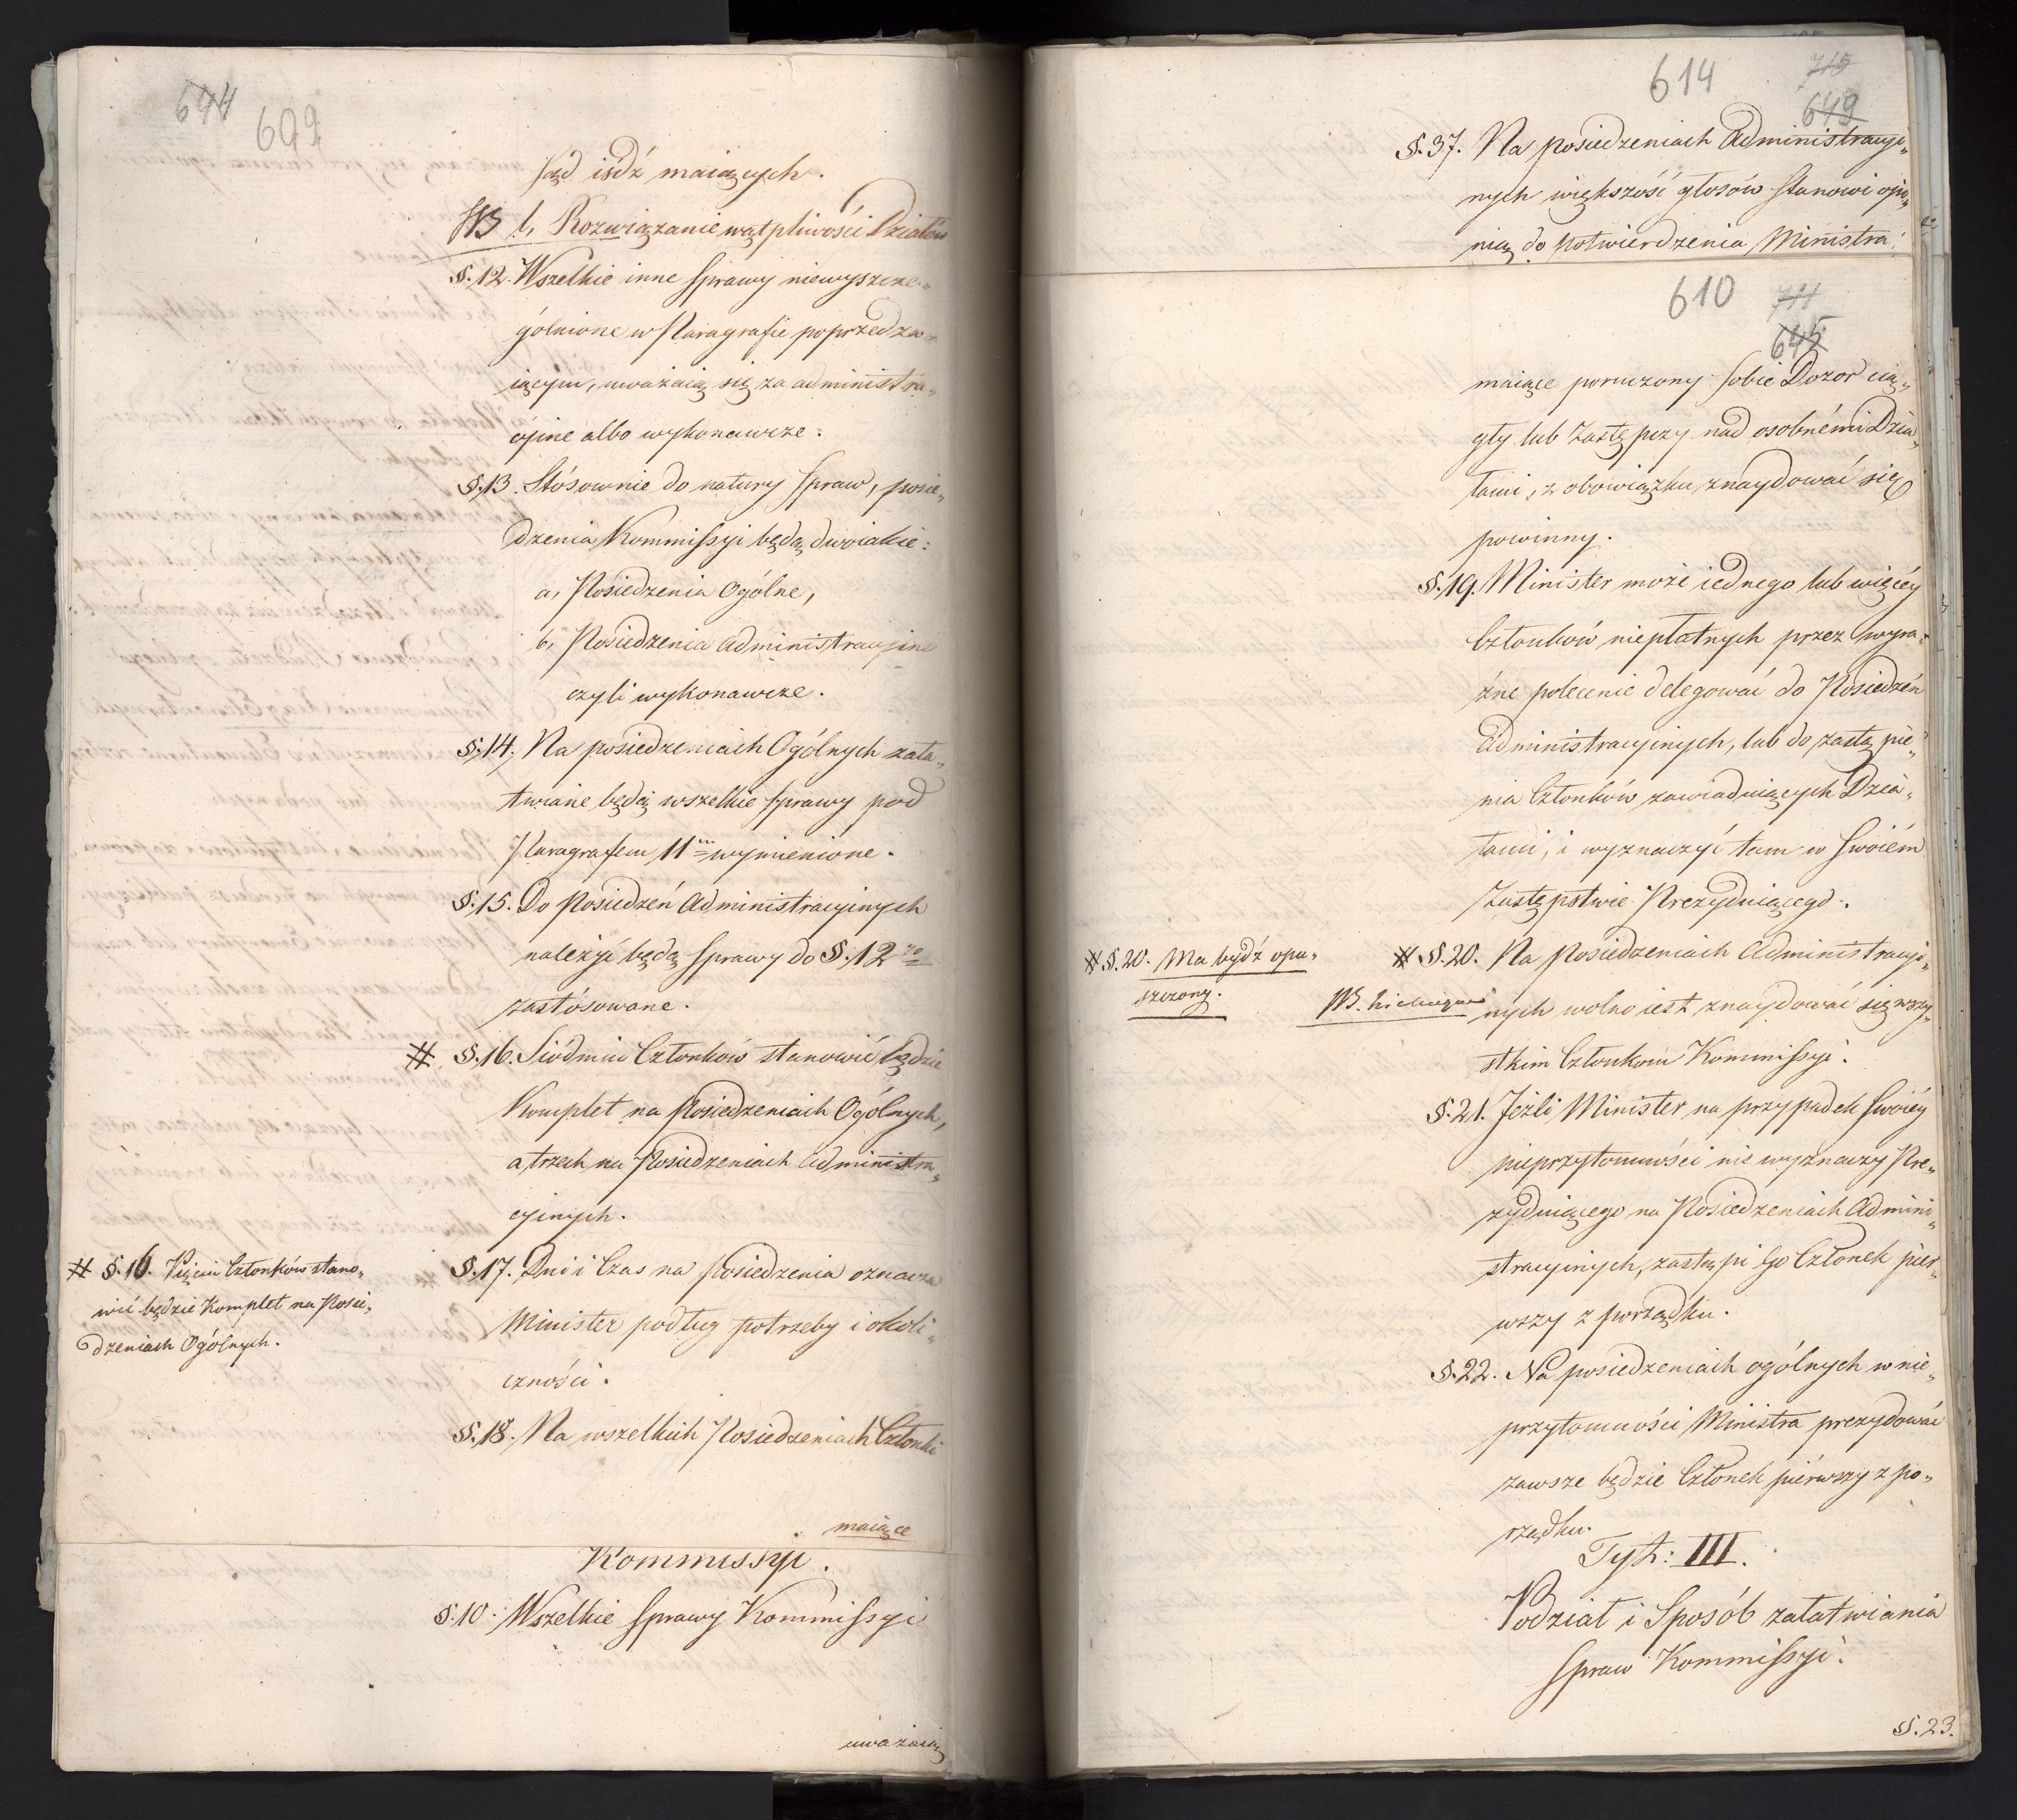 644
609
sąd iśdź maiących.
NB l, Rozwiązanie wątpliwości Działów
§. 12. Wszelkie inne Sprawy niewyszcze„
gólnione w Paragrafie poprzedza„
iącym, uważaią się za administra„
cyine albo wykonawcze.
§. 13. Stósownie do natury Spraw, posie„
dzenia Kommissyi będą dwoiakie:
a, Posiedzenia Ogólne,
b, Posiedzenia administracyine
czyli wykonawcze.
§. 14. Na posiedzeniach Ogólnych zała„
twiane będą wszelkie Sprawy pod
Paragrafem 11m wymienione.
§. 15. Do Posiedzeń Administracyinych
należyć będą Sprawy do §. 12go
zastósowane.
# §. 16. Siódmiu Członków stanowić będzie
Komplet na Posiedzeniach Ogólnych,
a trzech na Posiedzeniach Administra„
cyinych.
# §. 16. Pięciu Członków stano„
wić będzie Komplet na Posie„
dzeniach Ogólnych.
§. 17. Dni i Czas na Posiedzenia oznacza
Minister podług potrzeby i okoli„
czności.
§. 18. Na wszelkich Posiedzeniach Członki
maiące
Kommissyi.
§. 10. Wszelkie Sprawy Kommissyi
uważaią
614
715
649
§. 37. Na posiedzeniach Administracyi„
nych większość głosów stanowi opi„
nią do potwierdzenia Ministra.
610
711
645
maiące poruczony sobie Dozor cią„
gły lub zastępczy nad osobnémi Dzia„
łami, z obowiązku znaydować się
powinny.
§. 19. Minister może iednego lub więcéy
Członków niepłatnych przez wyra„
źne polecenie delegować do Posiedzeń
Administracyinych, lub do zastąpie„
nia Członków zawiaduiących Dzia„
łami, i wyznaczyć tam w Swoiém
Zastępstwie Prezyduiącego.
# §. 20. Ma bydź opu„
szczony.
# §. 20. Na Posiedzeniach Administracyi„
NB.
nych wolno iest znaydować się wszy„
stkim Członkom Kommissyi.
§. 21. Jeżli Minister na przypadek swoiéy
nieprzytomności nie wyznaczy Pre„
zyduiącego na Posiedzeniach Admini„
stracyinych, zastąpi Go Członek pier„
wszy z porządku.
§. 22. Na posiedzeniach ogólnych w nie„
przytomności Ministra prezydować
zawsze będzie Członek piérwszy z po„
rządku.
Tyt: III.
Podział i Sposób załatwiania
Spraw Kommissyi.
§. 23.